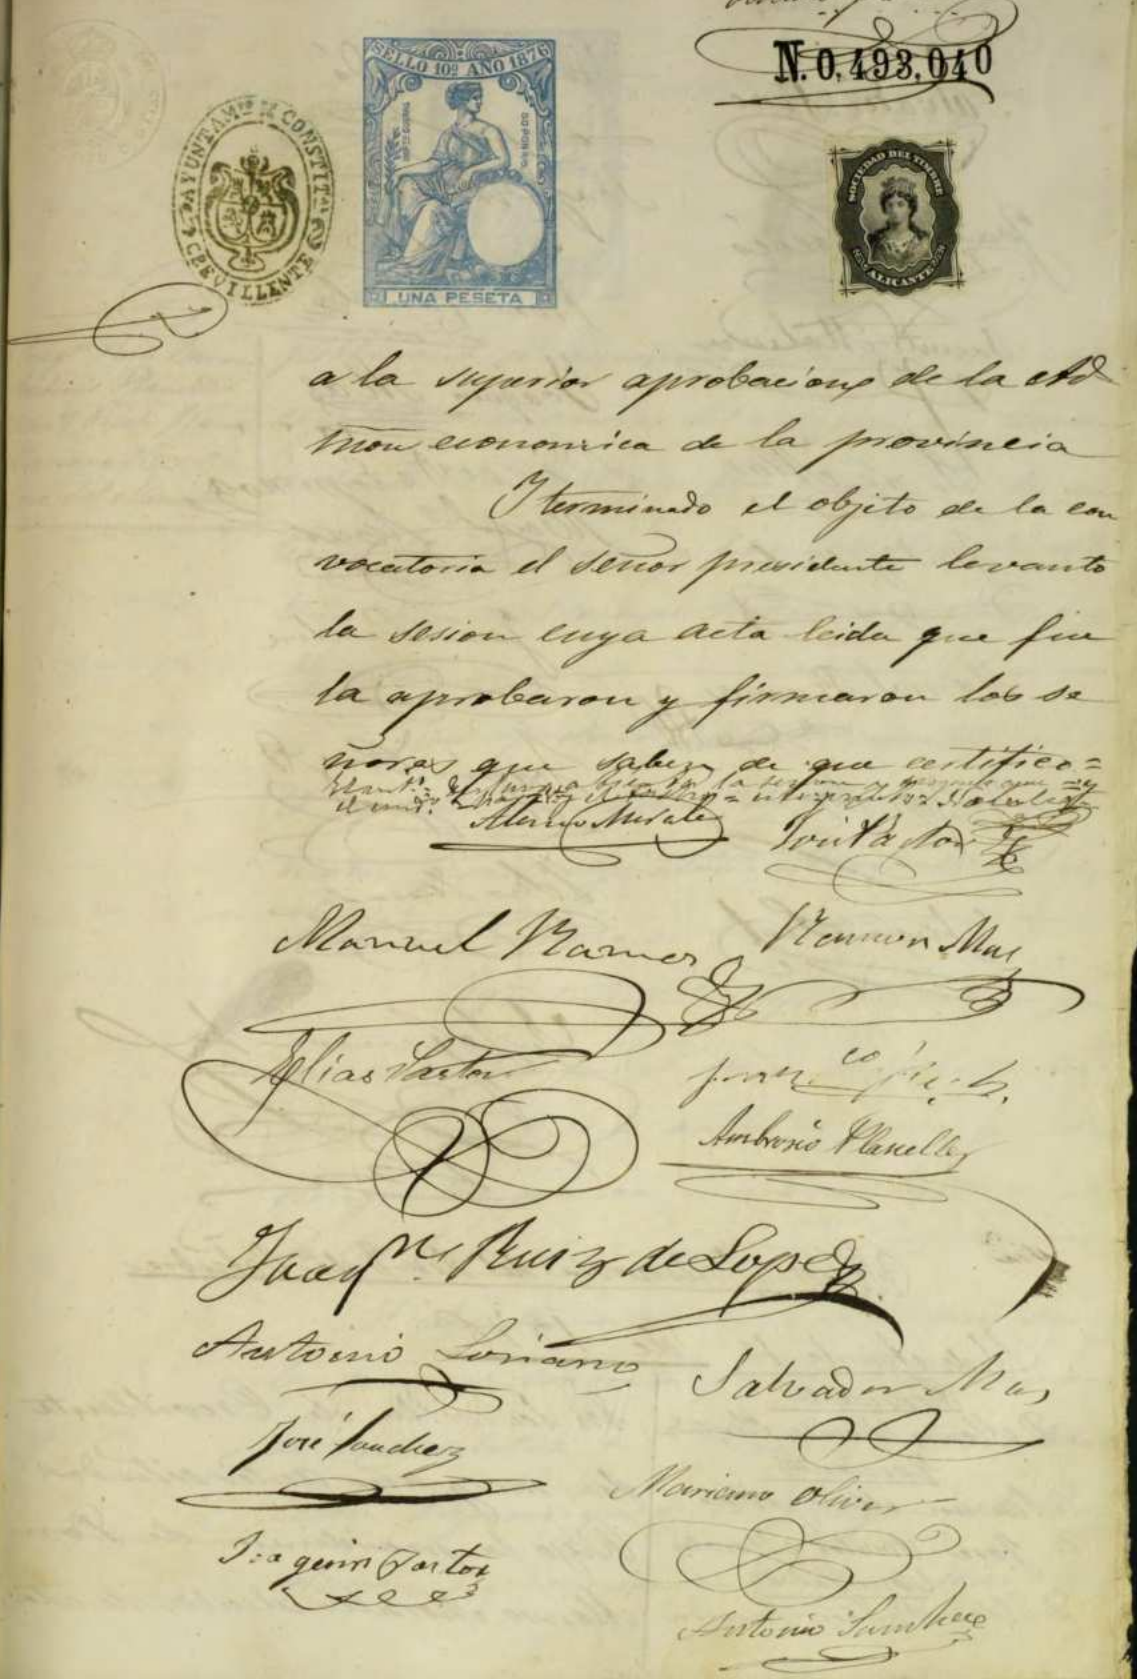 N. 0,493,040
SELLO 10º AÑO 1876
UNA PESETA
AYUNTAMto DE CONSTITal
CREVILLENTE
SOCIEDAD DEL TIMBRE
ALICANTE
a la superior aprobacion de la Ad
mon economica de la provincia
Y terminado el objeto de la con
vocatoria el señor presidente levanto
la sesion cuya acta leida que fue
la aprobaron y firmaron los se
ñores que saben de que certifico=
José Pastor
Manuel Ramos
Ramon Mas
Elias Pastor
Ambrosio Planelles
Joaqn Ruiz de Lopez
Antonio Soriano
Salvador Mas
José Sanchez
Mariano Oliver
Joaquin Pastor
Antonio Sanchez